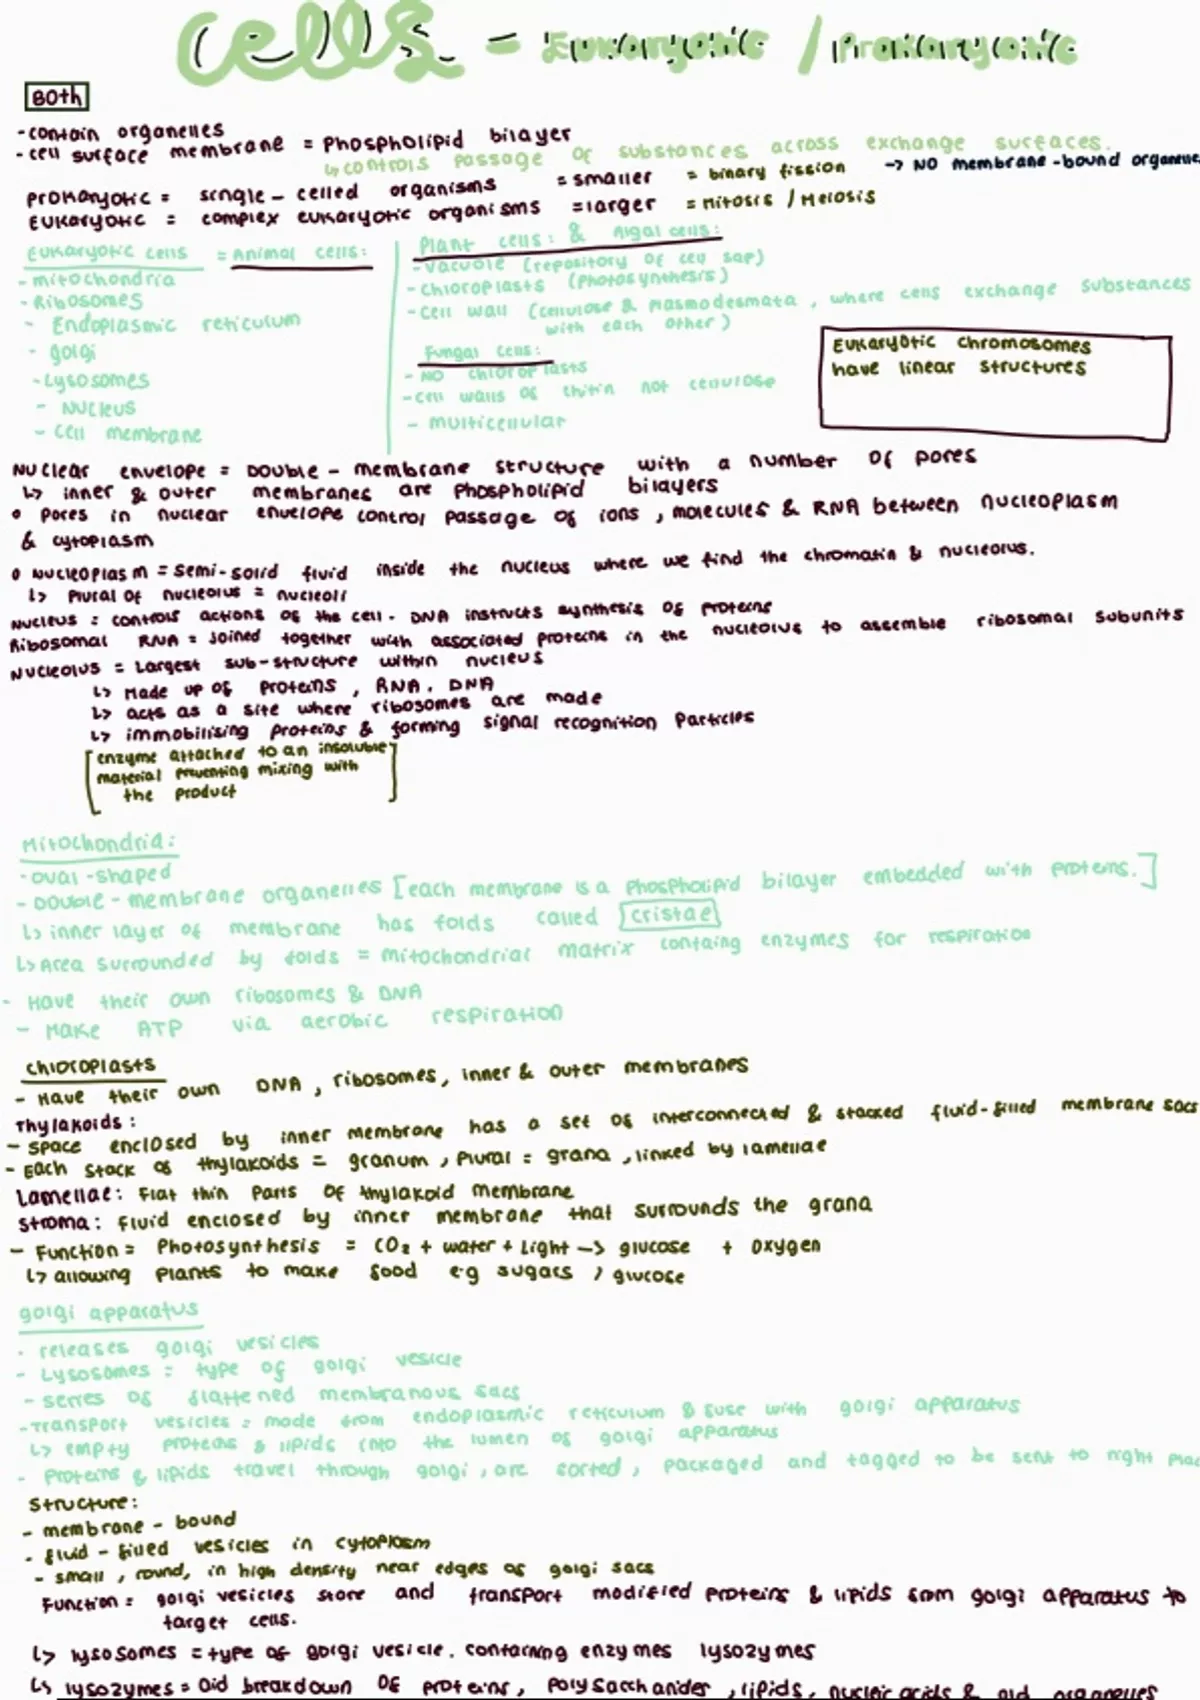 Cells - Eukaryotic / Prokaryotic
Both
- contain organelles
- cell surface membrane = Phospholipid bilayer
↳ controls passage of substances across exchange surfaces.
Prokaryotic = single - celled organisms = smaller = binary fission → NO membrane-bound organelle
Eukaryotic = complex eukaryotic organisms = larger = Mitosis / Meiosis
Eukaryotic cells = Animal cells:
- mitochondria
- Ribosomes
- Endoplasmic reticulum
- golgi
- Lysosomes
- Nucleus
- cell membrane
Plant cells: & Algal cells:
- vacuole (repository of cell sap)
- chloroplasts (Photosynthesis)
- cell wall (cellulose & Plasmodesmata, where cells exchange substances
with each other)
Fungal cells:
- NO chloroplasts
- cell walls of chitin not cellulose
- multicellular
Eukaryotic chromosomes
have linear structures
Nuclear envelope = Double - membrane structure with a number of pores
↳ inner & outer membranes are Phospholipid bilayers
• Pores in nuclear envelope control passage of ions, molecules & RNA between nucleoplasm
& cytoplasm
• Nucleoplasm = semi-solid fluid inside the nucleus where we find the chromatin & nucleolus.
↳ Plural of nucleolus = nucleoli
Nucleus = controls actions of the cell. DNA instructs synthesis of proteins
Ribosomal RNA = joined together with associated proteins in the nucleolus to assemble ribosomal subunits
Nucleolus = Largest sub-structure within nucleus
↳ Made up of proteins, RNA, DNA
↳ acts as a site where ribosomes are made
↳ immobilising proteins & forming signal recognition Particles
[enzyme attached to an insoluble
material preventing mixing with
the product]
Mitochondria:
- oval-shaped
- Double-membrane organelles [each membrane is a Phospholipid bilayer embedded with proteins.]
↳ inner layer of membrane has folds called cristae
↳ Area surrounded by folds = mitochondrial matrix containg enzymes for respiration
- Have their own ribosomes & DNA
- Make ATP via aerobic respiration
chloroplasts
- Have their own DNA, ribosomes, inner & outer membranes
Thylakoids:
- space enclosed by inner membrane has a set of interconnected & stacked fluid-filled membrane sacs
- Each stack of thylakoids = granum, Plural = grana, linked by lamellae
Lamellae: Flat thin parts of thylakoid membrane
Stroma: Fluid enclosed by inner membrane that surrounds the grana
- Function = Photosynthesis = CO₂ + water + Light → glucose + oxygen
↳ allowing Plants to make food e.g sugars, glucose
golgi apparatus
- releases golgi vesicles
- Lysosomes = type of golgi vesicle
- series of flattened membranous sacs
- Transport vesicles = made from endoplasmic reticulum & fuse with golgi apparatus
↳ empty proteins & lipids into the lumen of golgi apparatus
- Proteins & lipids travel through golgi, are sorted, packaged and tagged to be sent to right Plac
Structure:
- membrane - bound
- fluid - filled vesicles in cytoplasm
- small, round, in high density near edges of golgi sacs
Function = golgi vesicles store and transport modified proteins & lipids from golgi apparatus to
target cells.
↳ lysosomes = type of golgi vesicle. containing enzymes lysozymes
↳ lysozymes = aid breakdown of proteins, polysacchander, lipids, nucleic acids & old organelles